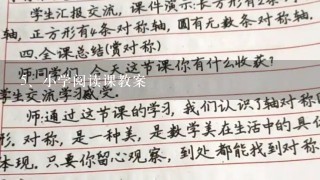 学生汇报交流，课件演示：长方形有2条
轴，正方形有4条对称轴，圆有无数条对称轴.
四.全课总结(赏对称)
师:同学们，今天这节课你有什么收获？
5、小学阅读课教案
学生交流学习感受.
师:通过这节课的学习，我们认识了轴对称图
形.对称，是一种美，是数学美在生活中的具体
体现.只要你留心观察，到处都能找到对称